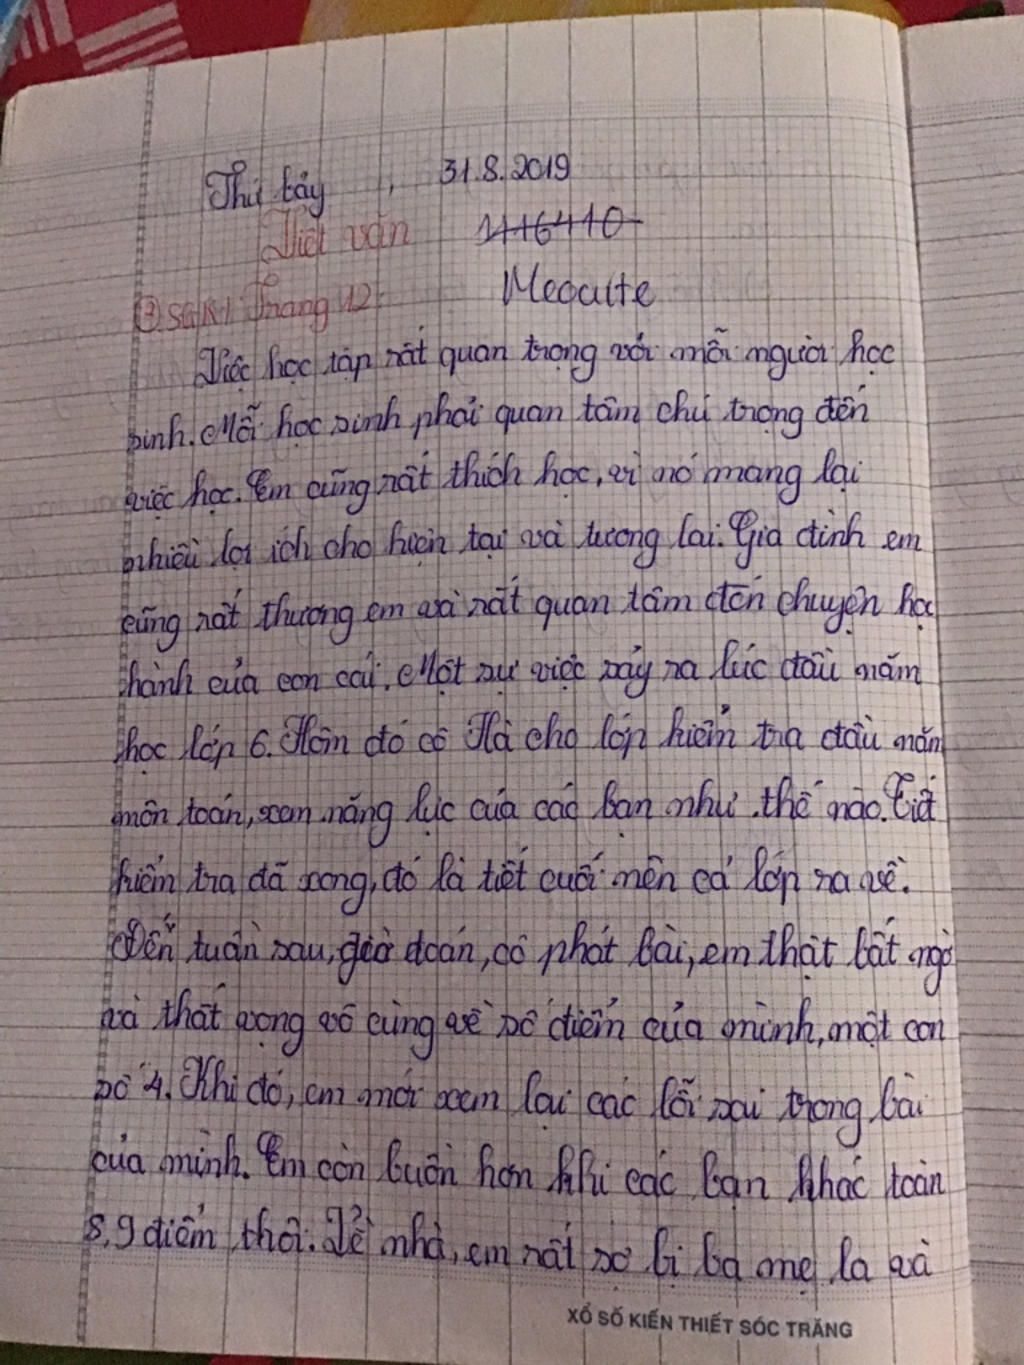 Thứ bảy , 31.8.2019
Viết văn 116410
② SGK/ Trang 12 Meoculte
Việc học tập rất quan trọng với mỗi người học
sinh. Mỗi học sinh phải quan tâm chú trọng đến
việc học. Em cũng rất thích học, vì nó mang lại
nhiều lợi ích cho hiện tại và tương lai. Gia đình em
cũng rất thương em và rất quan tâm đến chuyện học
hành của con cái. Một sự việc xảy ra lúc đầu năm
học lớp 6. Hôm đó cô Hà cho lớp kiểm tra đầu năm
môn toán, xem năng lực của các bạn như thế nào. Tiết
kiểm tra đã xong, đó là tiết cuối nên cả lớp ra về.
Đến tuần sau, giờ toán, cô phát bài, em thật bất ngờ
và thất vọng vô cùng về số điểm của mình, một con
số 4. Khi đó, em mới xem lại các lỗi sai trong bài
của mình. Em còn buồn hơn khi các bạn khác toàn
8, 9 điểm thôi. Về nhà, em rất sợ bị ba mẹ la và
XỔ SỐ KIẾN THIẾT SÓC TRĂNG